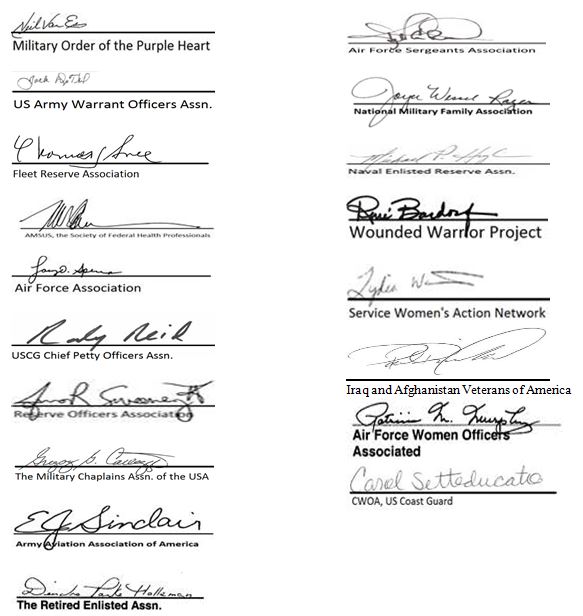 Neil Van Ess
Military Order of the Purple Heart
Jack Du Teil
US Army Warrant Officers Assn.
Thomas Snee
Fleet Reserve Association
AMSUS, the Society of Federal Health Professionals
Air Force Association
Rudy Reid
USCG Chief Petty Officers Assn.
Reserve Officers Association
The Military Chaplains Assn. of the USA
E J Sinclair
Army Aviation Association of America
Deirdre Parke Holleman
The Retired Enlisted Assn.
Air Force Sergeants Association
Joyce Wessel Raezer
National Military Family Association
Naval Enlisted Reserve Assn.
René Bardorf
Wounded Warrior Project
Lydia
Service Women's Action Network
Iraq and Afghanistan Veterans of America
Patricia M. Murphy
Air Force Women Officers
Associated
Carol Setteducato
CWOA, US Coast Guard